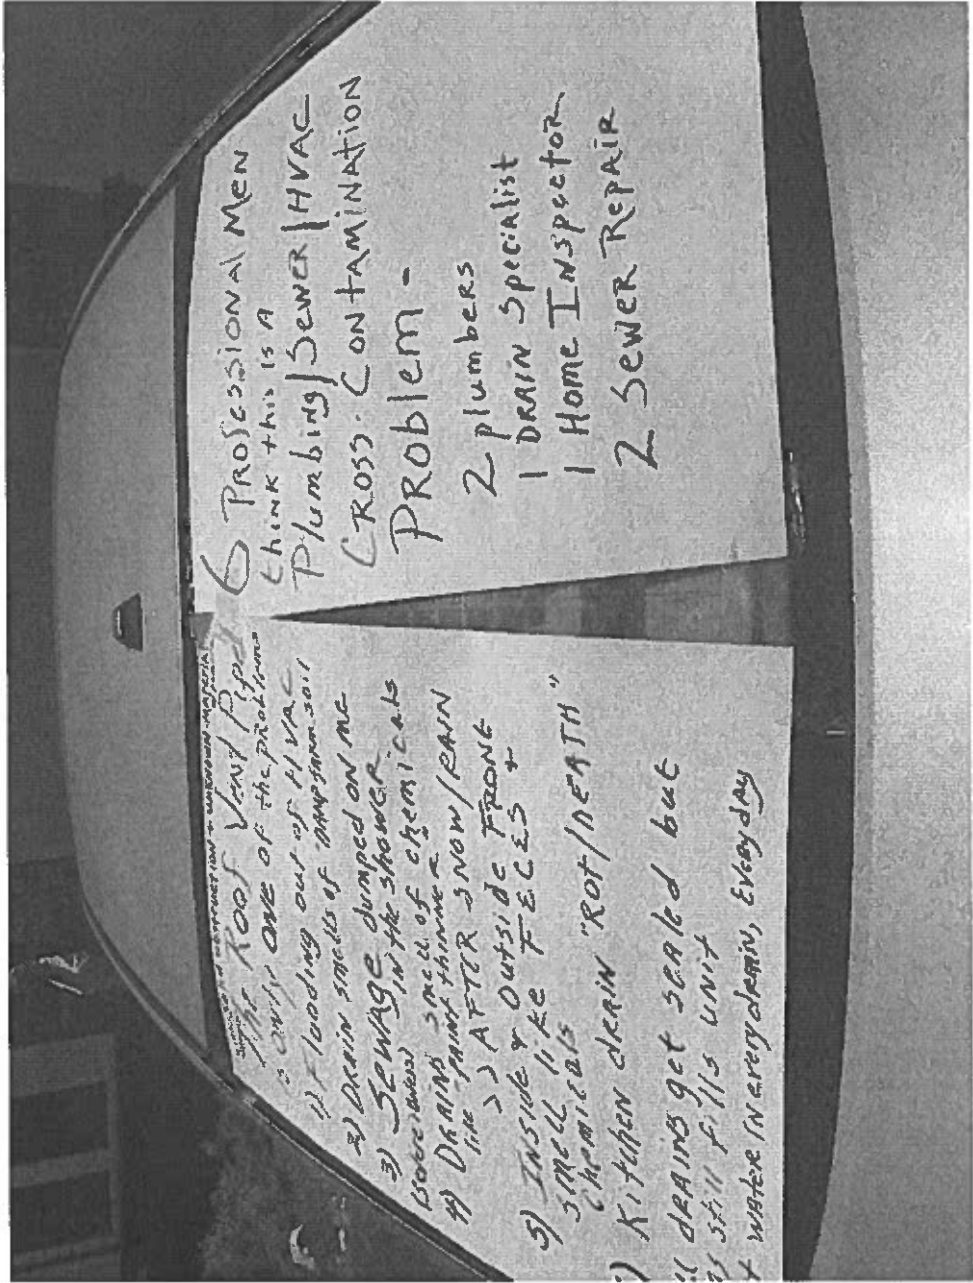 The Roof Vent Pipe
is only one of the problems
1) Flooding out of HVAC
2) DRAIN smells of DAMP FARM SOIL
3) Sewage dumped on me
IN the shower
4) DRAINS smell of chemicals
like PAINT thinner
>> AFTER SNOW/RAIN
5) INSIDE & OUTSIDE FRONT
smell like FECES +
Chemicals
) Kitchen drain "ROT/DEATH"
drains get sealed but
still fills unit
+ WATER IN every drain, Every day
6 PROFESSIONAL MEN
think this is A
Plumbing/Sewer/HVAC
CROSS-CONTAMINATION
PROblem-
2 plumbers
1 DRAIN Specialist
1 Home INSpector
2 Sewer Repair